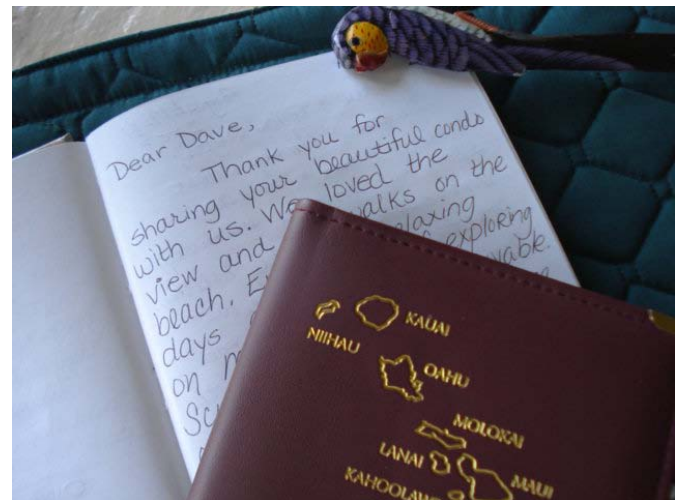 Dear Dave,
Thank you for
sharing your beautiful condo
with us. We loved the
view and walks on the
beach. relaxing
days exploring
on
NIIHAU
KAUAI
OAHU
MOLOKAI
LANAI
MAUI